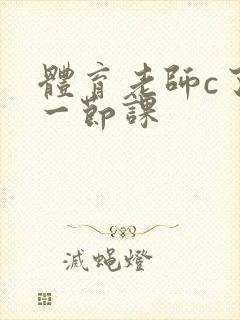 體育老師c了
一節課
滅蝇燈